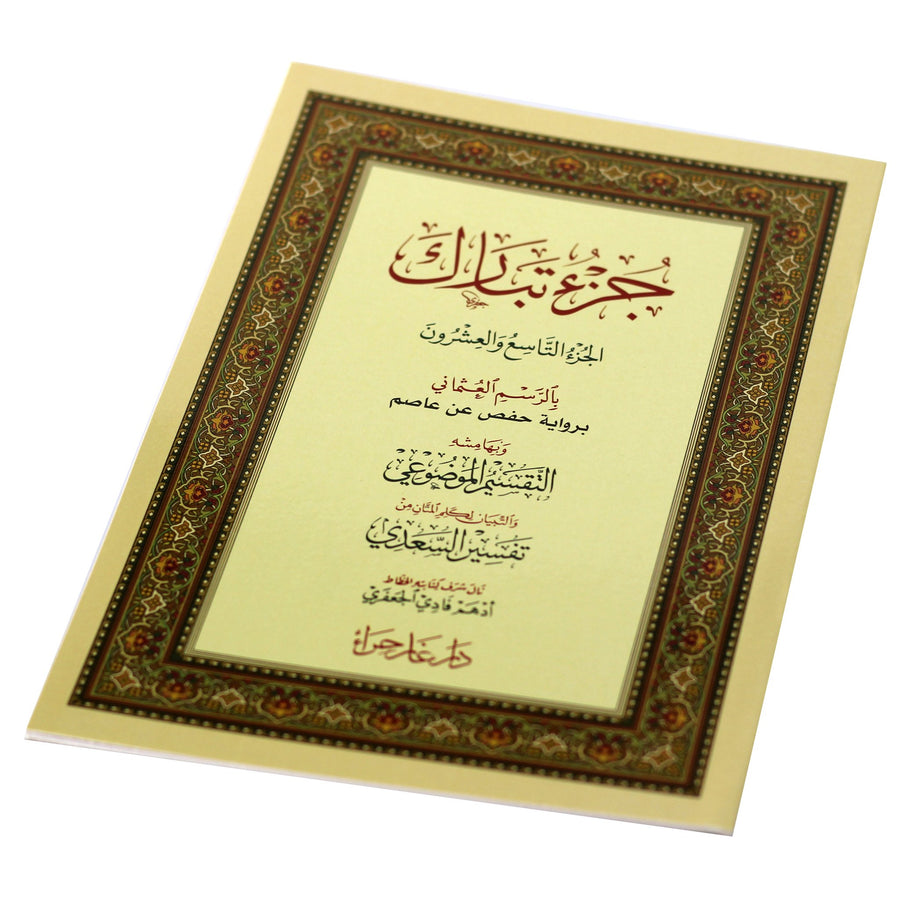 جُزْءُ تَبَارَكَ
الجُزْءُ التَّاسِعُ وَالعِشْرُونَ
بِالرَّسْمِ العُثْمَانِي
برواية حفص عن عاصم
وَبِهَامِشِهِ
التَّقْسِيمُ المَوْضُوعِيّ
وَالتِّبْيَان لِكَلِمِ المَنَّانِ مِنْ
تَفْسِيْرِ السَّعْدِيّ
نَالَ شَرَفَ كِتَابَتِهِ الخَطَّاط
أدْهَمْ فَادِي الجَعْفَرِي
دَارُ غَارِ حِرَاءُ